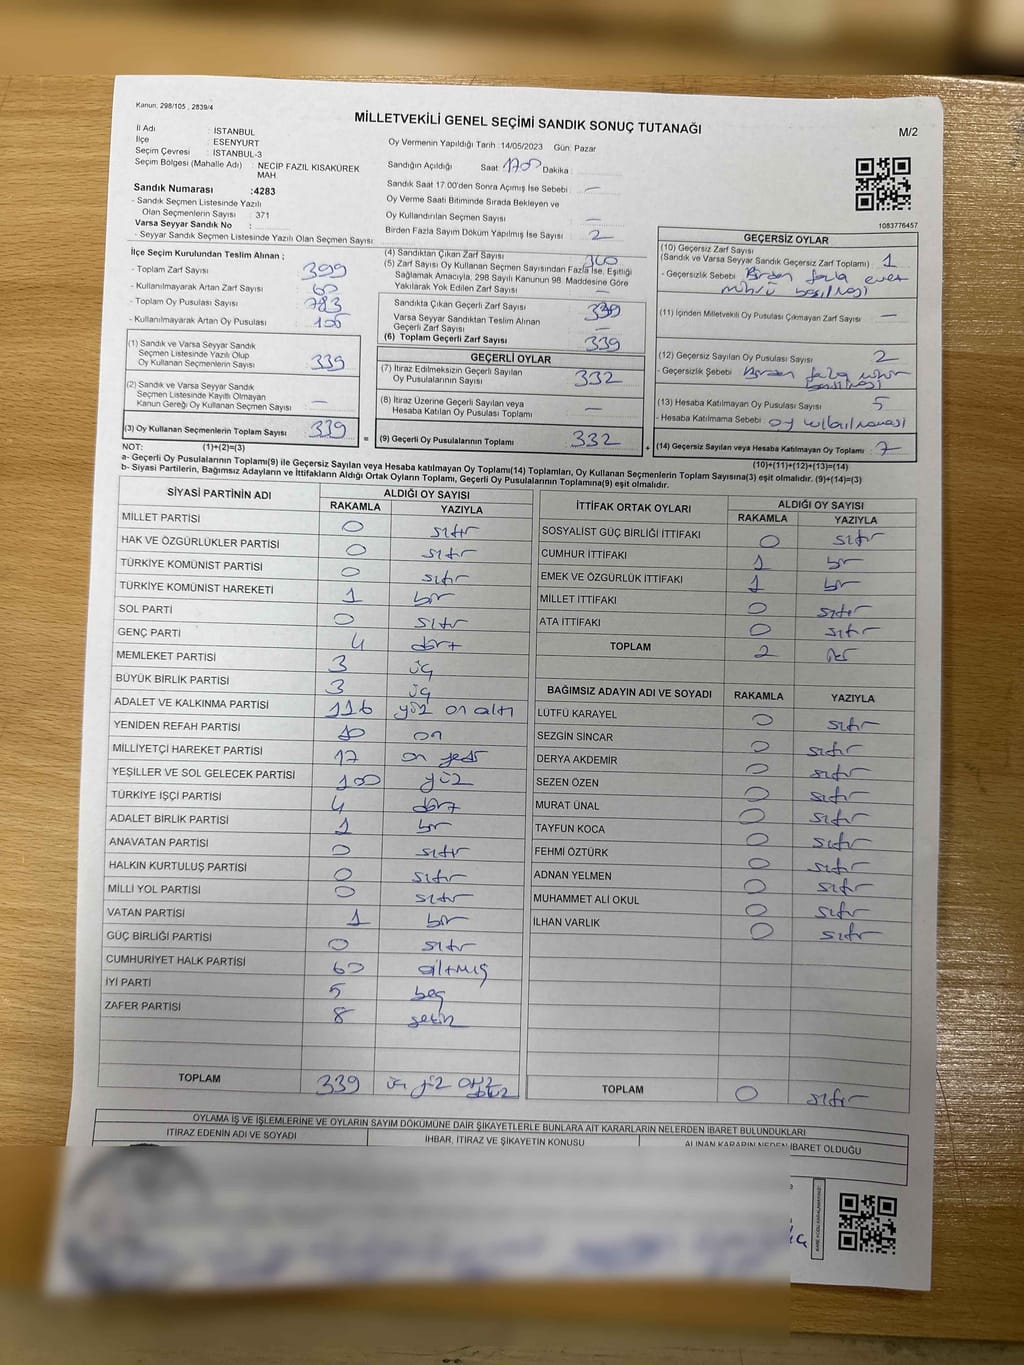 Kanun, 298/105 , 2839/4
MİLLETVEKİLİ GENEL SEÇİMİ SANDIK SONUÇ TUTANAĞI
M/2
İl Adı : İSTANBUL
İlçe : ESENYURT
Seçim Çevresi : İSTANBUL-3
Seçim Bölgesi (Mahalle Adı) : NECİP FAZIL KISAKÜREK
MAH.
Sandık Numarası :4283
- Sandık Seçmen Listesinde Yazılı
Olan Seçmenlerin Sayısı : 371
Varsa Seyyar Sandık No :
- Seyyar Sandık Seçmen Listesinde Yazılı Olan Seçmen Sayısı:
Oy Vermenin Yapıldığı Tarih : 14/05/2023 Gün: Pazar
Sandığın Açıldığı Saat: 17:00 Dakika :
Sandık Saat 17:00'den Sonra Açımış İse Sebebi : —
Oy Verme Saati Bitiminde Sırada Bekleyen ve
Oy Kullandırılan Seçmen Sayısı : —
Birden Fazla Sayım Döküm Yapılmış İse Sayısı : 2
1083776457
İlçe Seçim Kurulundan Teslim Alınan ;
- Toplam Zarf Sayısı : 399
- Kullanılmayarak Artan Zarf Sayısı : 60
- Toplam Oy Pusulası Sayısı :
- Kullanılmayarak Artan Oy Pusulası :
(1) Sandık ve Varsa Seyyar Sandık
Seçmen Listesinde Yazılı Olup
Oy Kullanan Seçmenlerin Sayısı : 339
(2) Sandık ve Varsa Seyyar Sandık
Seçmen Listesinde Kayıtlı Olmayan
Kanun Gereği Oy Kullanan Seçmen Sayısı : —
(3) Oy Kullanan Seçmenlerin Toplam Sayısı : 339
(4) Sandıktan Çıkan Zarf Sayısı : 340
(5) Zarf Sayısı Oy Kullanan Seçmen Sayısından Fazla İse, Eşitliği
Sağlamak Amacıyla, 298 Sayılı Kanunun 98. Maddesine Göre
Yakılarak Yok Edilen Zarf Sayısı : —
Sandıkta Çıkan Geçerli Zarf Sayısı : 339
Varsa Seyyar Sandıktan Teslim Alınan
Geçerli Zarf Sayısı : —
(6) Toplam Geçerli Zarf Sayısı : 339
GEÇERLİ OYLAR
(7) İtiraz Edilmeksizin Geçerli Sayılan
Oy Pusulalarının Sayısı : 332
(8) İtiraz Üzerine Geçerli Sayılan veya
Hesaba Katılan Oy Pusulası Toplamı : —
= (9) Geçerli Oy Pusulalarının Toplamı : 332
GEÇERSİZ OYLAR
(10) Geçersiz Zarf Sayısı
(Sandık ve Varsa Seyyar Sandık Geçersiz Zarf Toplamı) : 1
- Geçersizlik Sebebi : Birden fazla evet
mührü basılması
(11) İçinden Milletvekili Oy Pusulası Çıkmayan Zarf Sayısı : —
(12) Geçersiz Sayılan Oy Pusulası Sayısı : 2
- Geçersizlik Sebebi : Birden fazla mühür
basılması
(13) Hesaba Katılmayan Oy Pusulası Sayısı : 5
- Hesaba Katılmama Sebebi : oy kullanılmaması
+ (14) Geçersiz Sayılan veya Hesaba Katılmayan Oy Toplamı : 7
NOT: (1)+(2)=(3)
(10)+(11)+(12)+(13)=(14)
a- Geçerli Oy Pusulalarının Toplamı(9) ile Geçersiz Sayılan veya Hesaba katılmayan Oy Toplam(14) Toplamları, Oy Kullanan Seçmenlerin Toplam Sayısına(3) eşit olmalıdır. (9)+(14)=(3)
b- Siyasi Partilerin, Bağımsız Adayların ve İttifakların Aldığı Ortak Oyların Toplamı, Geçerli Oy Pusulalarının Toplamına(9) eşit olmalıdır.
SİYASİ PARTİNİN ADI ALDIĞI OY SAYISI
RAKAMLA YAZIYLA
MİLLET PARTİSİ 0 sıfır
HAK VE ÖZGÜRLÜKLER PARTİSİ 0 sıfır
TÜRKİYE KOMÜNİST PARTİSİ 0 sıfır
TÜRKİYE KOMÜNİST HAREKETİ 1 bir
SOL PARTİ 0 sıfır
GENÇ PARTİ 4 dört
MEMLEKET PARTİSİ 3 üç
BÜYÜK BİRLİK PARTİSİ 3 üç
ADALET VE KALKINMA PARTİSİ 116 yüz on altı
YENİDEN REFAH PARTİSİ 10 on
MİLLİYETÇİ HAREKET PARTİSİ 17 on yedi
YEŞİLLER VE SOL GELECEK PARTİSİ 100 yüz
TÜRKİYE İŞÇİ PARTİSİ 4 dört
ADALET BİRLİK PARTİSİ 1 bir
ANAVATAN PARTİSİ 0 sıfır
HALKIN KURTULUŞ PARTİSİ 0 sıfır
MİLLİ YOL PARTİSİ 0 sıfır
VATAN PARTİSİ 1 bir
GÜÇ BİRLİĞİ PARTİSİ 0 sıfır
CUMHURİYET HALK PARTİSİ 60 altmış
İYİ PARTİ 5 beş
ZAFER PARTİSİ 8 sekiz
TOPLAM 339 üç yüz otuz dokuz
İTTİFAK ORTAK OYLARI ALDIĞI OY SAYISI
RAKAMLA YAZIYLA
SOSYALİST GÜÇ BİRLİĞİ İTTİFAKI 0 sıfır
CUMHUR İTTİFAKI 1 bir
EMEK VE ÖZGÜRLÜK İTTİFAKI 1 bir
MİLLET İTTİFAKI 0 sıfır
ATA İTTİFAKI 0 sıfır
TOPLAM 2 iki
BAĞIMSIZ ADAYIN ADI VE SOYADI RAKAMLA YAZIYLA
LÜTFÜ KARAYEL 0 sıfır
SEZGİN SİNCAR 0 sıfır
DERYA AKDEMİR 0 sıfır
SEZEN ÖZEN 0 sıfır
MURAT ÜNAL 0 sıfır
TAYFUN KOCA 0 sıfır
FEHMİ ÖZTÜRK 0 sıfır
ADNAN YELMEN 0 sıfır
MUHAMMET ALİ OKUL 0 sıfır
İLHAN VARLIK 0 sıfır
TOPLAM 0 sıfır
OYLAMA İŞ VE İŞLEMLERİNE VE OYLARIN SAYIM DÖKÜMÜNE DAİR ŞİKAYETLERLE BUNLARA AİT KARARLARIN NELERDEN İBARET BULUNDUKLARI
İTİRAZ EDENİN ADI VE SOYADI İHBAR, İTİRAZ VE ŞİKAYETİN KONUSU ALINAN KARARIN NEDEN İBARET OLDUĞU